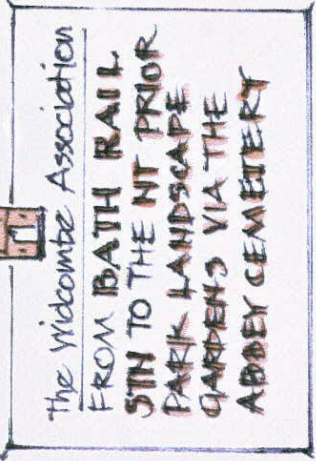 The Widcombe Association
FROM BATH RAIL
STN TO THE NT PRIOR
PARK LANDSCAPE
GARDENS VIA THE
ABBEY CEMETERY